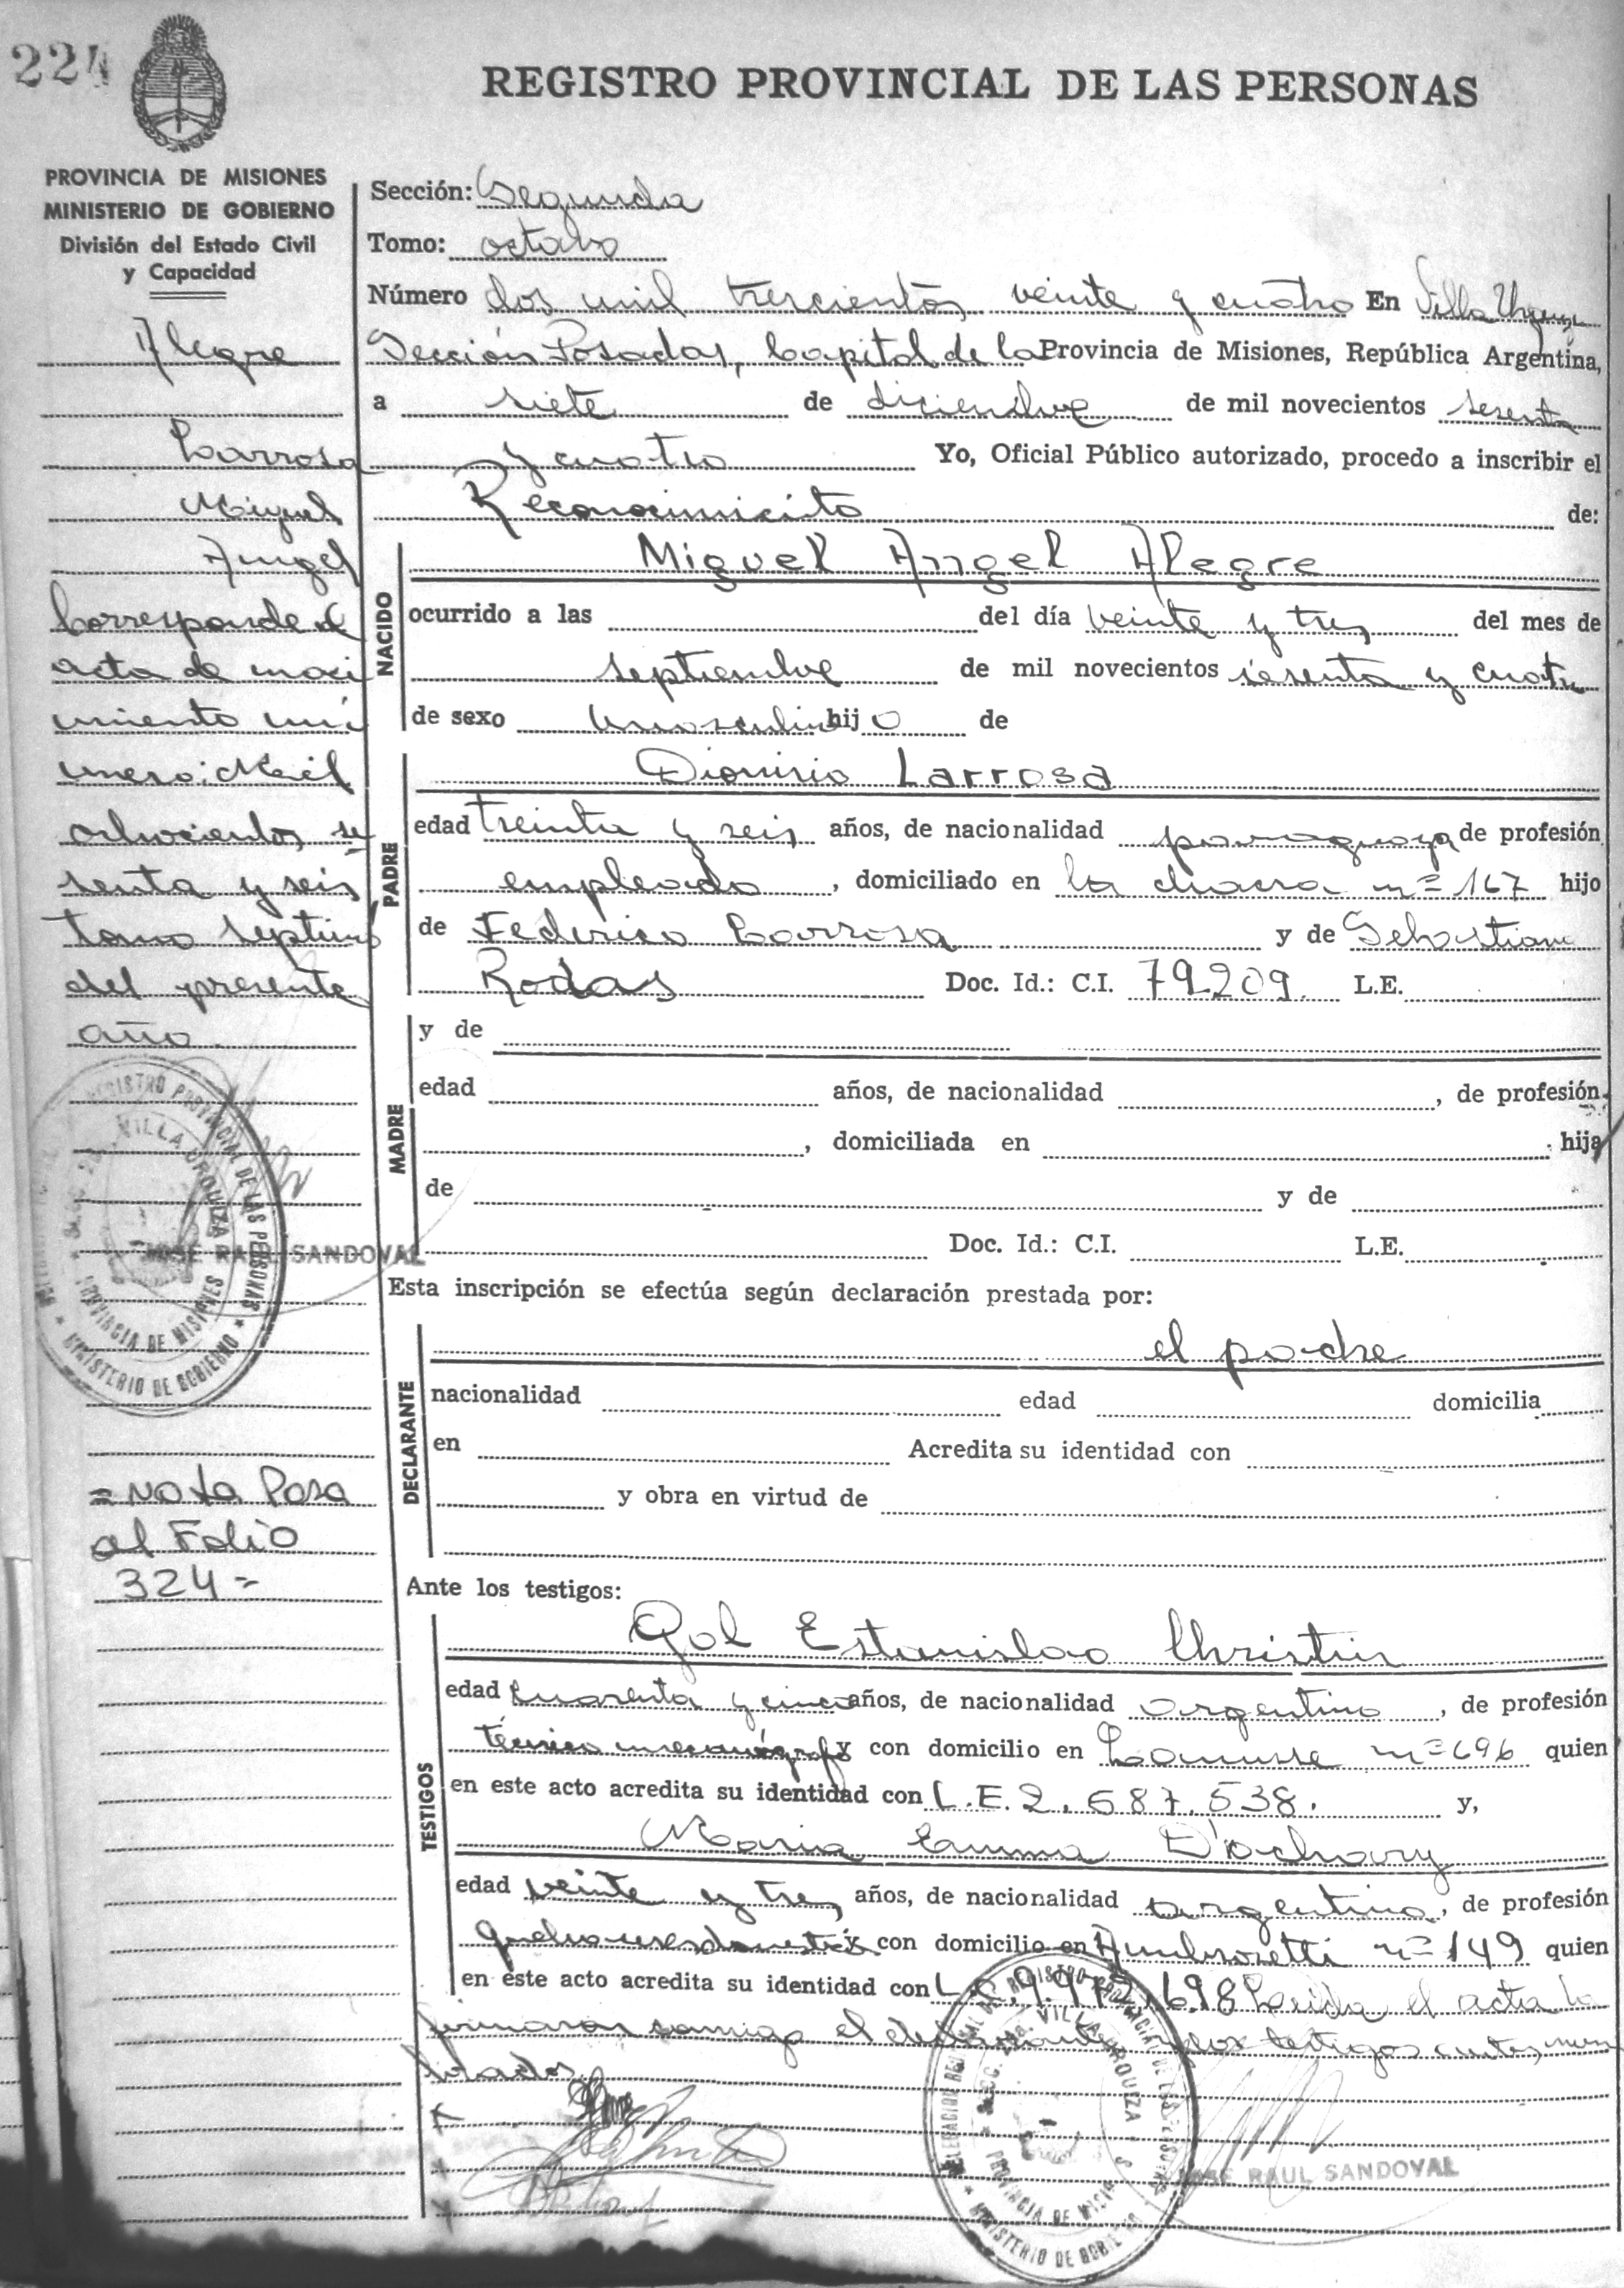 224
REGISTRO PROVINCIAL DE LAS PERSONAS
PROVINCIA DE MISIONES
MINISTERIO DE GOBIERNO
División del Estado Civil
y Capacidad
Alegre
Larrosa
Miguel
Angel
Corresponde al
acta de naci
miento nú
mero: Mil
ochocientos se
senta y seis
tomo septimo
del presente
año
REGISTRO PROVINCIAL DE LAS PERSONAS
VILLA URQUIZA
PROVINCIA DE MISIONES
MINISTERIO DE GOBIERNO
JOSE RAUL SANDOVAL
= Nota Pasa
al Folio
324 =
Sección: Segunda
Tomo: octavo
Número dos mil trescientos veinte y cuatro En Villa Urquiza
Sección Posadas, Capital de la Provincia de Misiones, República Argentina,
a siete de diciembre de mil novecientos sesenta
y cuatro Yo, Oficial Público autorizado, procedo a inscribir el
Reconocimiento de:
NACIDO
Miguel Angel Alegre
ocurrido a las del día veinte y tres del mes de
septiembre de mil novecientos sesenta y cuatro
de sexo masculino hijo de
PADRE
Dionisio Larrosa
edad treinta y seis años, de nacionalidad paraguaya de profesión
empleado, domiciliado en la chacra nº 167 hijo
de Federico Larrosa y de Sebastiana
Rodas Doc. Id.: C.I. 79209. L.E.
MADRE
y de
edad años, de nacionalidad , de profesión
, domiciliada en hija
de y de
Doc. Id.: C.I. L.E.
Esta inscripción se efectúa según declaración prestada por:
DECLARANTE
el padre
nacionalidad edad domicilia
en Acredita su identidad con
y obra en virtud de
Ante los testigos:
TESTIGOS
Estanislao Christin
edad cuarenta y cinco años, de nacionalidad argentino, de profesión
técnico mecanógrafo y con domicilio en Lanusse nº 696 quien
en este acto acredita su identidad con L.E. 2.687.538. y,
Maria Emma
edad veinte y tres años, de nacionalidad argentina, de profesión
y con domicilio en Ambrosetti nº 149 quien
en este acto acredita su identidad con L.C. 9.972.698 Leida el acta la
firmaron conmigo el declarante y los testigos antes nom
brados
DELEGACION REGISTRO PROVINCIAL DE LAS PERSONAS
SECC. 2da. VILLA URQUIZA
PROVINCIA DE MISIONES
MINISTERIO DE GOBIERNO
JOSE RAUL SANDOVAL